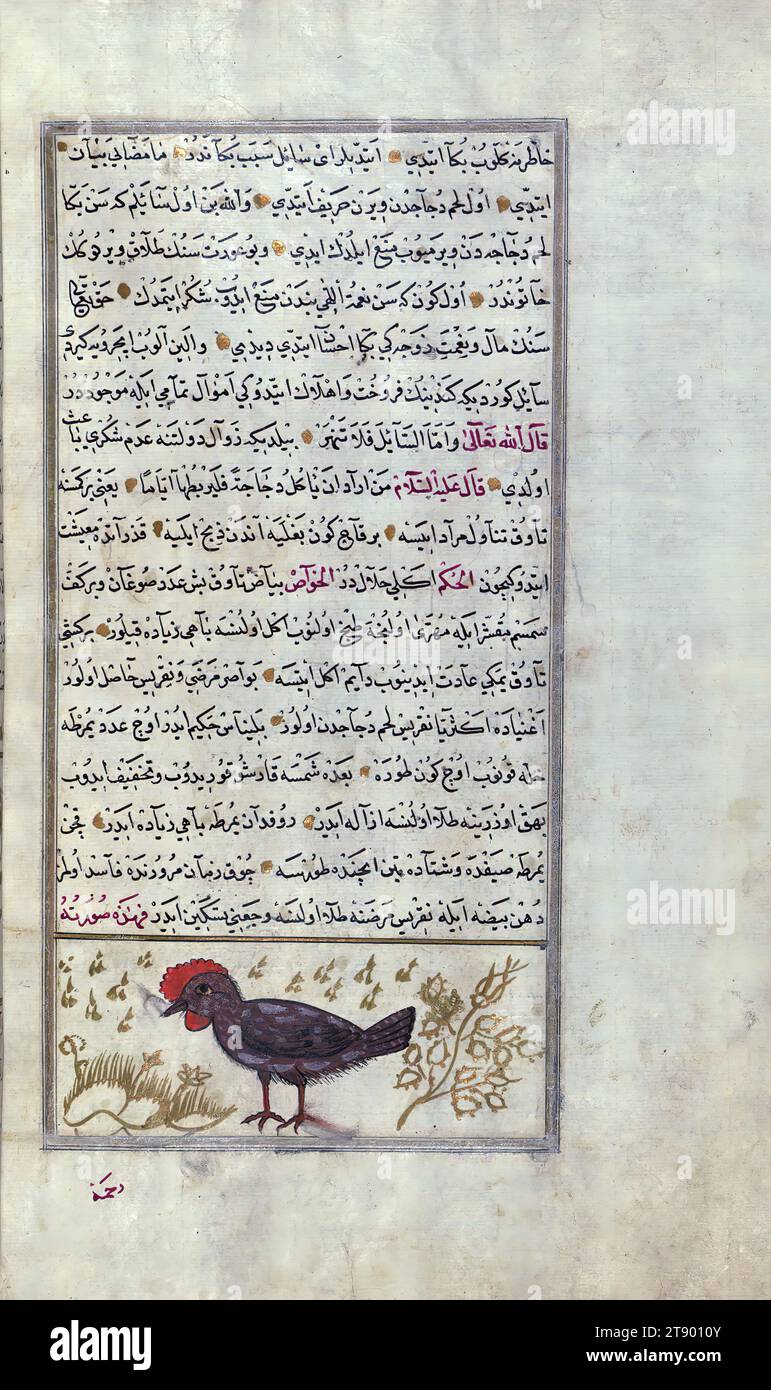 خاطرینه كلوب بكا ایتدی ایتدیلر ای سائل سبب بكا ندر ما مضانی بیان
ایتدی اول لحم دجاجدن ویرن حریف ایتدی والله بن اول سائلم كه سن بكا
لحم دجاجه دن ویرمیوب منع ایلدك ایدی وبو عورت سنك طلاق ویردوكك
خاتوندر اول كون كه سن نعمة اللهی بندن منع ایدوب شكر ایتمدك حق تعالی
سنك مال ونعمت زوجه كی بكا احسان ایتدی دیدی والین آلوب ایچرویه كیردی
سایل كوردیكه كندینك فروخت واهلاك ایتدوكی اموال تمامی ایله موجوددر
قال الله تعالی واما السآئل فلا تنهر بیلدیكه زوال دولتنه عدم شكری باعث
اولدی قال علیه السلام من اراد ان یاكل دجاجة فلیربطها ایاما یعنی بركمسه
تاوق تناول مراد ایتسه برقاچ كون بغلیه آندن ذبح ایلیه قذرآنده معیشت
ایتدوكیچون الحكم اكلی حلال در الخواص بیاض تاوق بش عدد صوغان وبر كف
سمسم مقشر ایله مهری اولنجه طبخ اولنوب اكل اولنسه باهی زیاده قیلور بركشی
تاوق یمكی عادت ایدینوب دایم اكل ایتسه بواصر مرضی ونقریس حاصل اولور
اغنیاده اكثریا نقریس لحم دجاجدن اولور بلیناس حكیم ایدر اوچ عدد یمرطه
خله قونوب اوچ كون طوره بعده شمسه قارشو قوریدوب وتخفیف ایدوب
بهق اوزرینه طلا اولنسه ازاله ایدر روفدان یمرطه باهی زیاده ایدر قچن
یمرطه صیفده وشتاده تبن ایچنده طورسه چوق زمان مرورنده فاسد اولمز
دهن بیضه ایله نقریس مرضنه طلا اولنسه وجعنی تسكین ایدر فهذه صورته
دجمة
alamy
alamy
alamy
Image ID: 2T9010Y
www.alamy.com